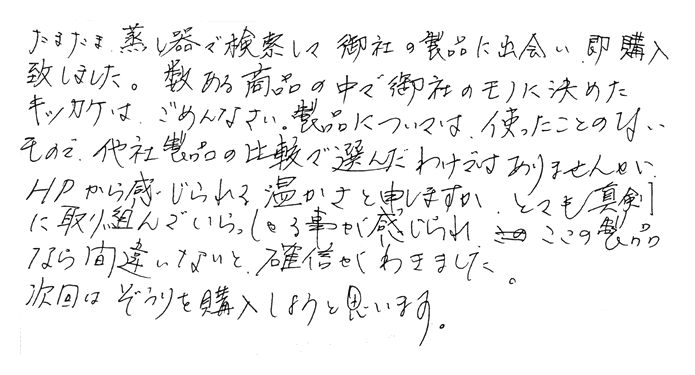 たまたま、蒸し器で検索して御社の製品に出会い、即購入
致しました。数ある商品の中で御社のモノに決めた
キッカケは、ごめんなさい。製品については、使ったことのない
もので、他社製品の比較で選んだわけではありませんが、
HPから感じられる温かさと申しますか、とても真剣
に取り組んでいらっしゃる事が感じられ、ここの製品
なら間違いないと、確信がわきました。
次回はぞうりを購入しようと思います。